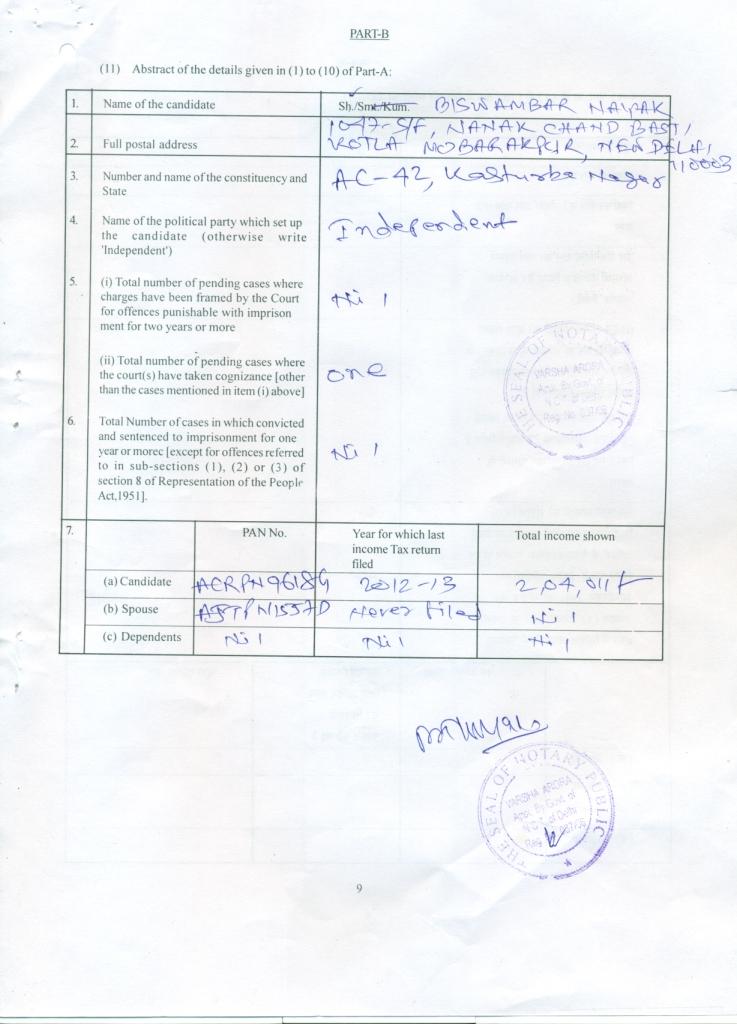 PART-B
(11) Abstract of the details given in (1) to (10) of Part-A:
1. Name of the candidate Sh./Smt./Kum. BISWAMBAR NAYAK
2. Full postal address 1047-S/F, NANAK CHAND BASTI
KOTLA MOBARAKPUR, NEW DELHI
110003
3. Number and name of the constituency and
State
AC-42, Kasturba Nagar
4. Name of the political party which set up
the candidate (otherwise write
'Independent')
Independent
5. (i) Total number of pending cases where
charges have been framed by the Court
for offences punishable with imprison
ment for two years or more
Nil
(ii) Total number of pending cases where
the court(s) have taken cognizance [other
than the cases mentioned in item (i) above]
one
6. Total Number of cases in which convicted
and sentenced to imprisonment for one
year or moree [except for offences referred
to in sub-sections (1), (2) or (3) of
section 8 of Representation of the People
Act,1951].
Nil
7. PAN No. Year for which last Total income shown
income Tax return
filed
(a) Candidate ACRPN9618G 2012-13 2,04,011/-
(b) Spouse Never filed Nil
(c) Dependents Nil Nil Nil
THE SEAL OF NOTARY PUBLIC
VARSHA ARORA
Apu. By Govt. of
N.C.T. of Delhi
THE SEAL OF NOTARY PUBLIC
VARSHA ARORA
Apu. By Govt. of
N.C.T. of Delhi
9